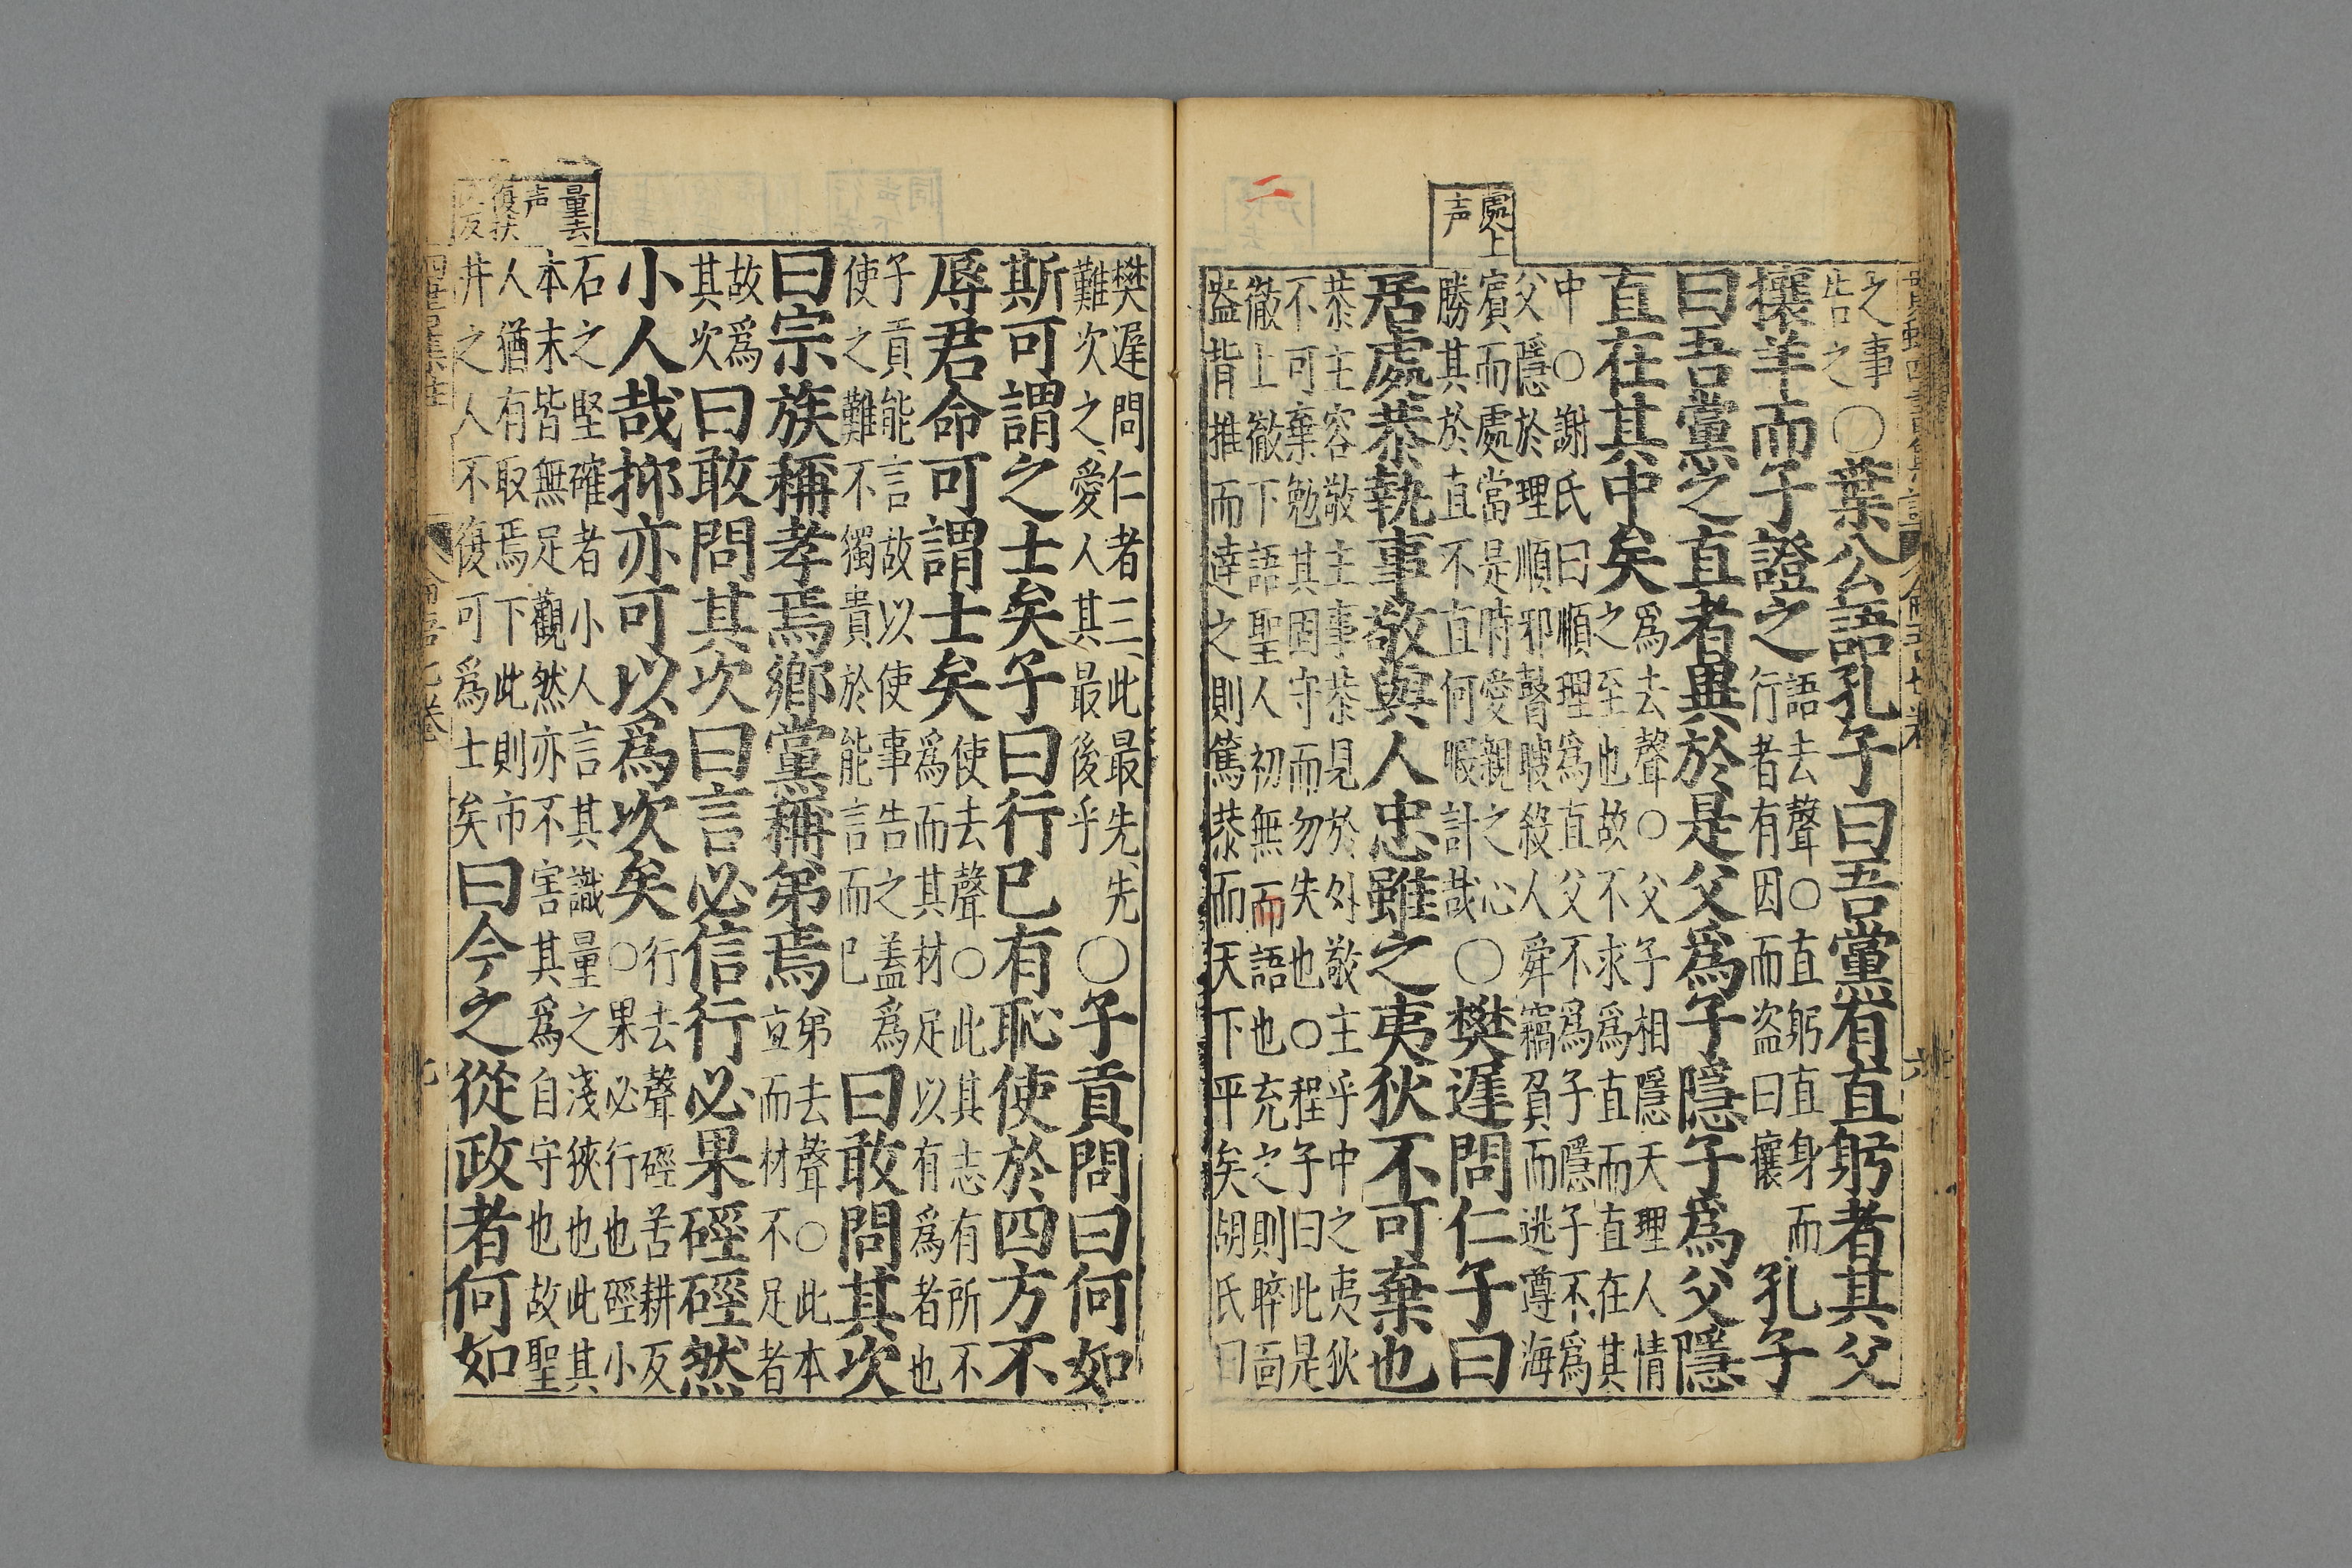 處上
声
之事
告之
○葉公語孔子曰吾黨有直躬者其父
攘羊而子證之
語去聲○直躬直身而
行者有因而盜曰攘
孔子
曰吾黨之直者異於是父爲子隱子爲父隱
直在其中矣
爲去聲○父子相隱天理人情
之至也故不求爲直而直在其
中○謝氏曰順理爲直父不爲子隱子不爲
父隱於理順邪瞽瞍殺人舜竊負而逃遵海
濱而處當是時愛親之心
勝其於直不直何暇計哉
○樊遲問仁子曰
居處恭執事敬與人忠雖之夷狄不可棄也
恭主容敬主事恭見於外敬主乎中之夷狄
不可棄勉其固守而勿失也○程子曰此是
徹上徹下語聖人初無而語也充之則睟面
盎背推而達之則篤恭而天下平矣胡氏曰
二
量去
声
復扶
又反
樊遲問仁者三此最先先
難次之愛人其最後乎
○子貢問曰何如
斯可謂之士矣子曰行已有恥使於四方不
辱君命可謂士矣
使去聲○此其志有所不
爲而其材足以有爲者也
子貢能言故以使事告之蓋爲
使之難不獨貴於能言而已
曰敢問其次
曰宗族稱孝焉鄉黨稱弟焉
弟去聲○此本
立而材不足者
故爲
其次
曰敢問其次曰言必信行必果硜硜然
小人哉抑亦可以爲次矣
行去聲硜苦耕反
○果必行也硜小
石之堅確者小人言其識量之淺狹也此其
本末皆無足觀然亦不害其爲自守也故聖
人猶有取焉下此則市
井之人不復可爲士矣
曰今之從政者何如